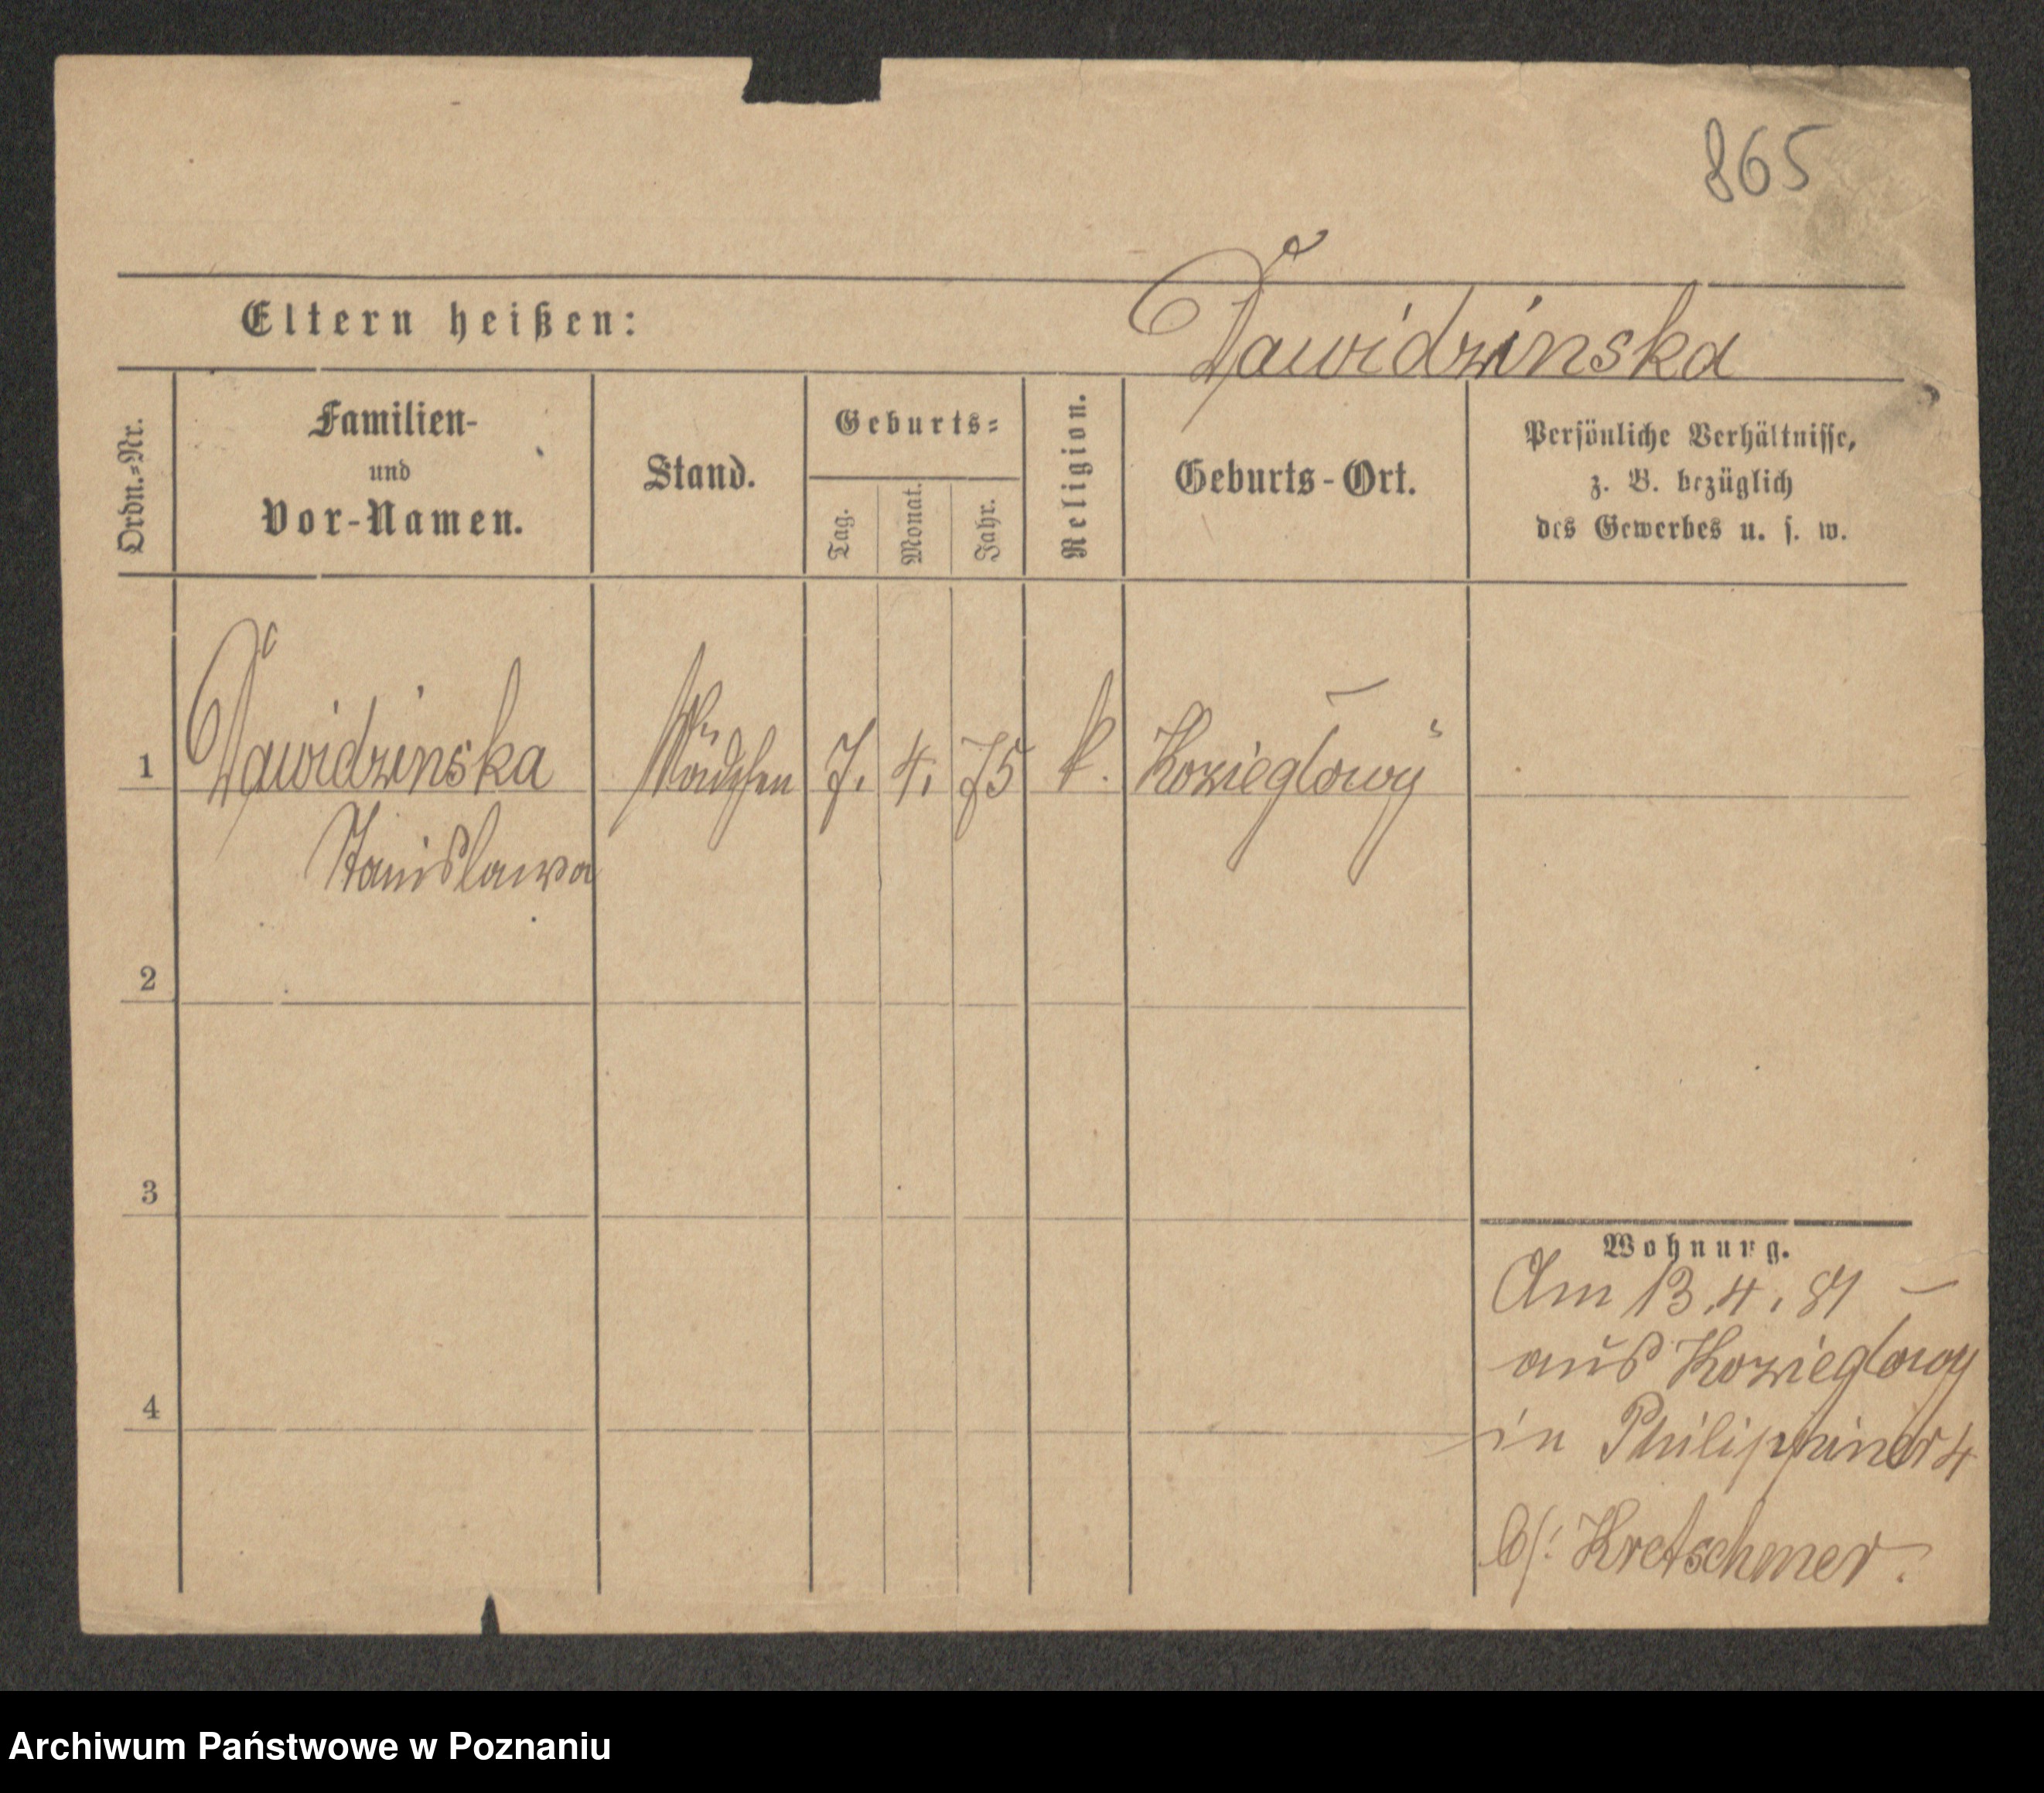 865
Eltern heißen:
Dawidzinska
Ordn.=Nr.
Familien-
und
Vor-Namen.
Stand.
Geburts=
Tag.
Monat.
Jahr.
Religion.
Geburts-Ort.
Persönliche Verhältnisse,
z. B. bezüglich
des Gewerbes u. s. w.
1 Dawidzinska Mädchen 7. 4. 75 k. Kozieglowy
Stanislawa
2
3
4
Wohnung.
Am 13.4.
aus Kozieglowy
in 4
b/: Kretschmer.
Archiwum Państwowe w Poznaniu